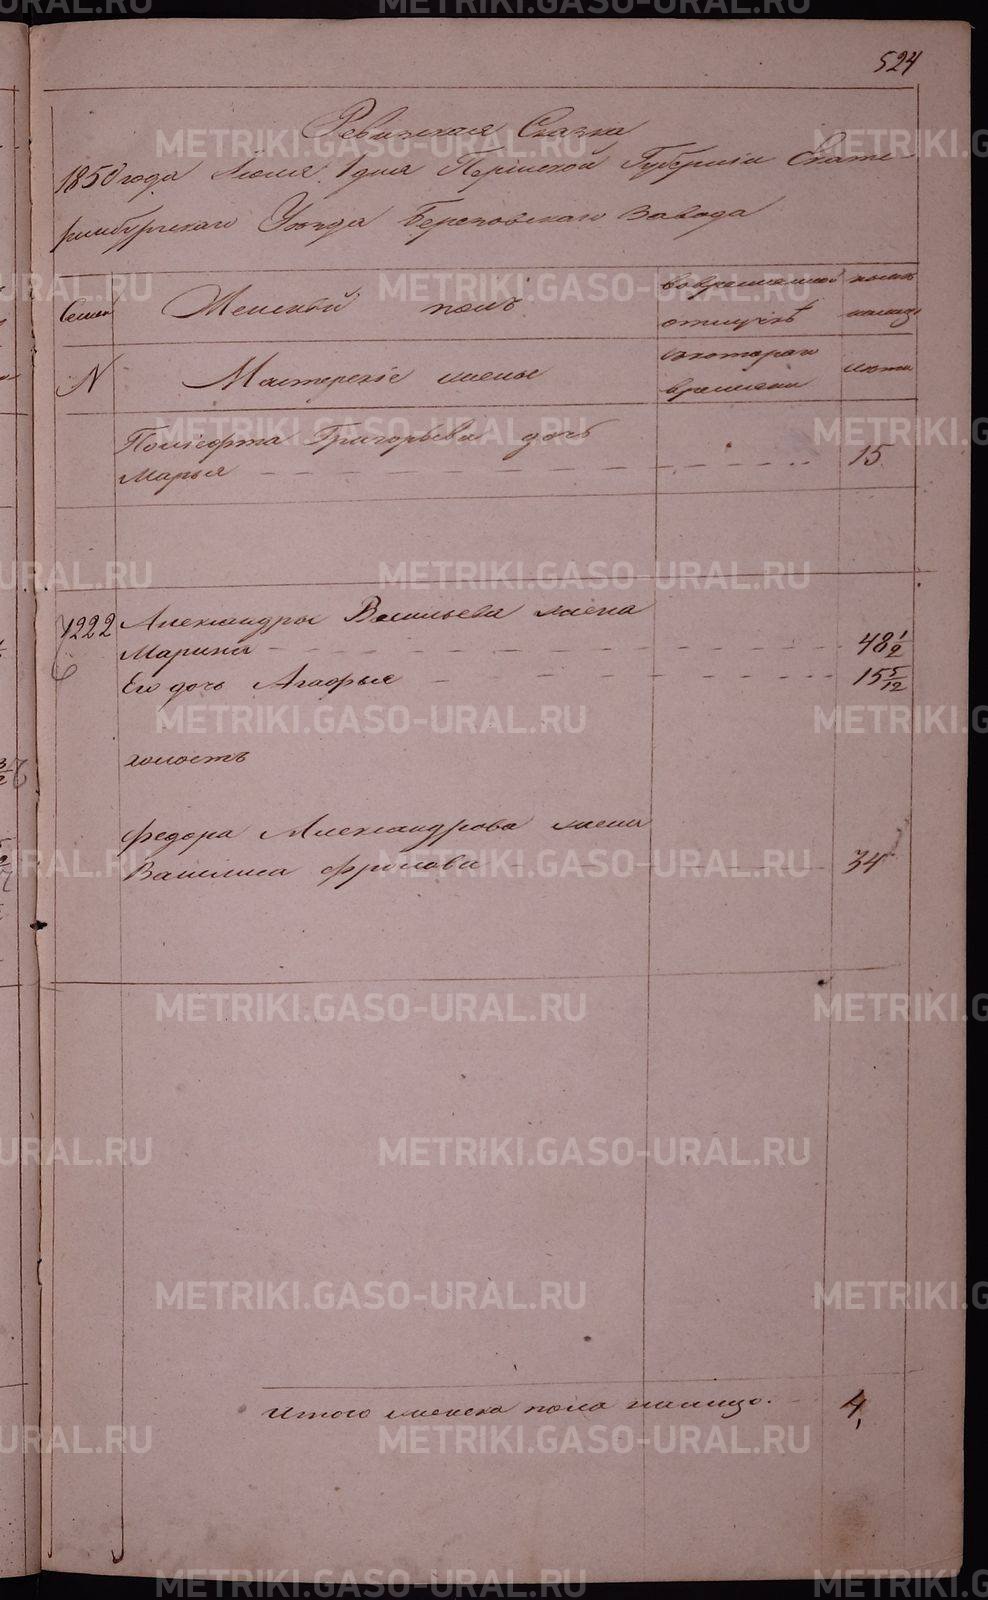 524
Ревизская Сказка
1850 года Июля 1 дня Пермской Губернии Екате-
ринбургскаго Уезда Березовскаго Завода
Семьи
Женский полъ
во временной
отлучкѣ
ныне
налицо
N
Мастерские жены
с которого
времени
лета
Григорьева дочь
Марья
15
1222
Александры Васильева жена
Марина
48 1/2
Его дочь Агафья
15 5/12
холостъ
Федора Александрова жена
Василиса Фролова
34
Итого женска пола налицо.
4
METRIKI.GASO-URAL.RU